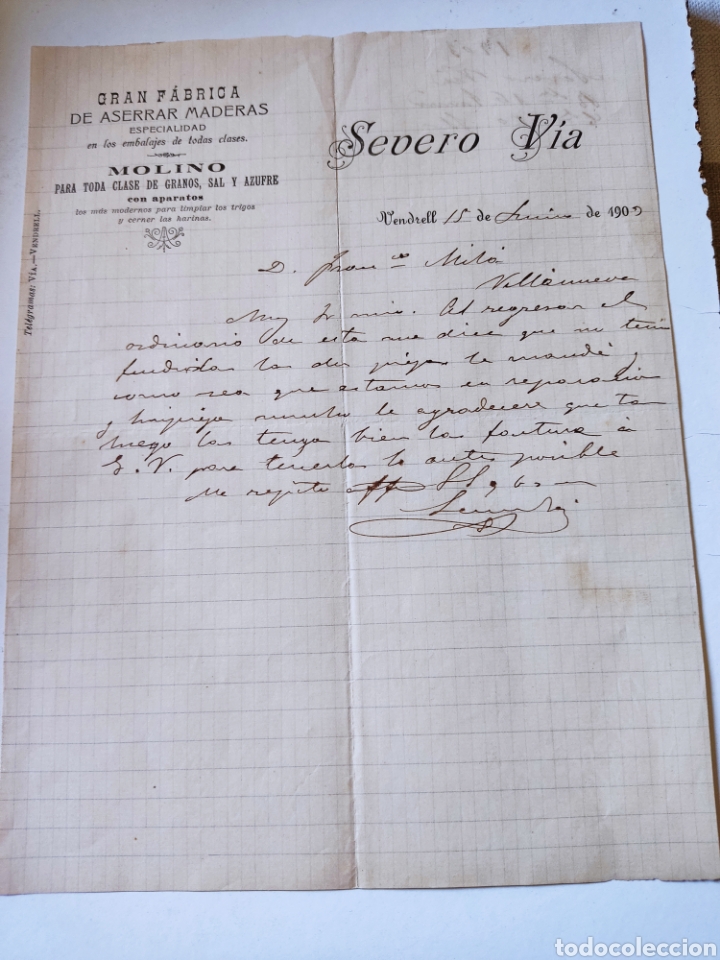 GRAN FÁBRICA
DE ASERRAR MADERAS
ESPECIALIDAD
en los embalajes de todas clases.
MOLINO
PARA TODA CLASE DE GRANOS, SAL Y AZUFRE
con aparatos
los más modernos para limpiar los trigos
y cerner las harinas.
Telégramas: VÍA.—VENDRELL.
Severo Vía
Vendrell 15 de Junio de 190
D. Franco Milá
Villanueva
Muy Sr mio. Al regresar el
ordinario de esta me dice que no tenia
fundidas las dos piezas le mandé y
como sea que estamos en reparacion
y limpieza mucho le agradecere que tan
luego las tenga bien las
S. V. para tenerlas lo antes posible
Me repito aff SS q b s m
Severo Vía
todocoleccion